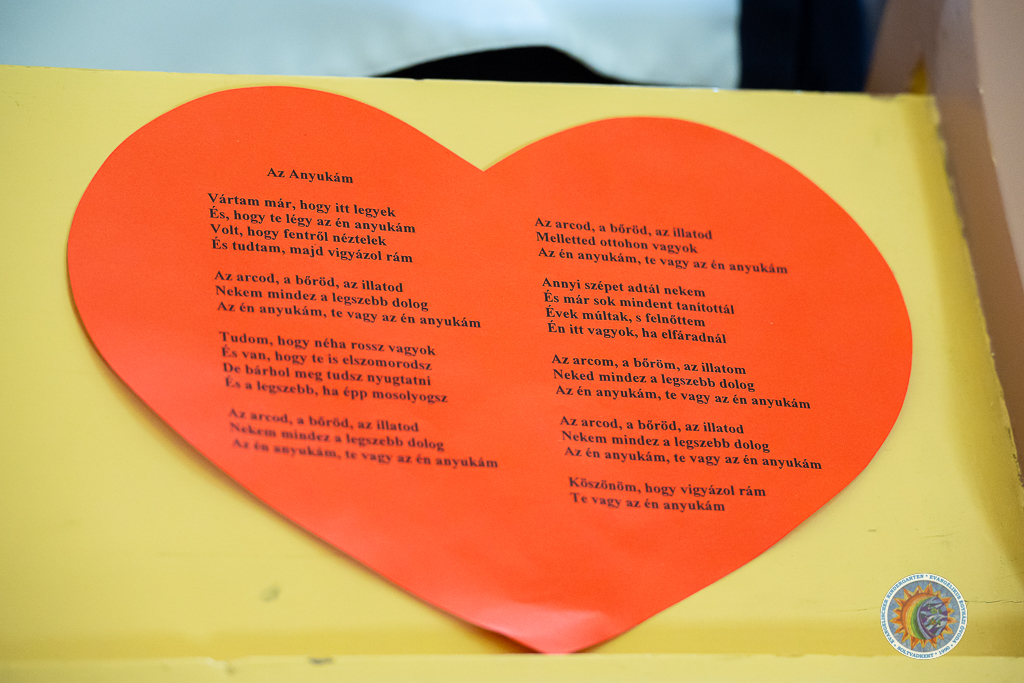 Az Anyukám
Vártam már, hogy itt legyek
És, hogy te légy az én anyukám
Volt, hogy fentről néztelek
És tudtam, majd vigyázol rám
Az arcod, a bőröd, az illatod
Nekem mindez a legszebb dolog
Az én anyukám, te vagy az én anyukám
Tudom, hogy néha rossz vagyok
És van, hogy te is elszomorodsz
De bárhol meg tudsz nyugtatni
És a legszebb, ha épp mosolyogsz
Az arcod, a bőröd, az illatod
Nekem mindez a legszebb dolog
Az én anyukám, te vagy az én anyukám
Az arcod, a bőröd, az illatod
Melletted ottohon vagyok
Az én anyukám, te vagy az én anyukám
Annyi szépet adtál nekem
És már sok mindent tanítottál
Évek múltak, s felnőttem
Én itt vagyok, ha elfáradnál
Az arcom, a bőröm, az illatom
Neked mindez a legszebb dolog
Az én anyukám, te vagy az én anyukám
Az arcod, a bőröd, az illatod
Nekem mindez a legszebb dolog
Az én anyukám, te vagy az én anyukám
Köszönöm, hogy vigyázol rám
Te vagy az én anyukám
EVANGELISCHER KINDERGARTEN * EVANGÉLIKUS EGYHÁZI ÓVODA
* SOLTVADKERT * 1990